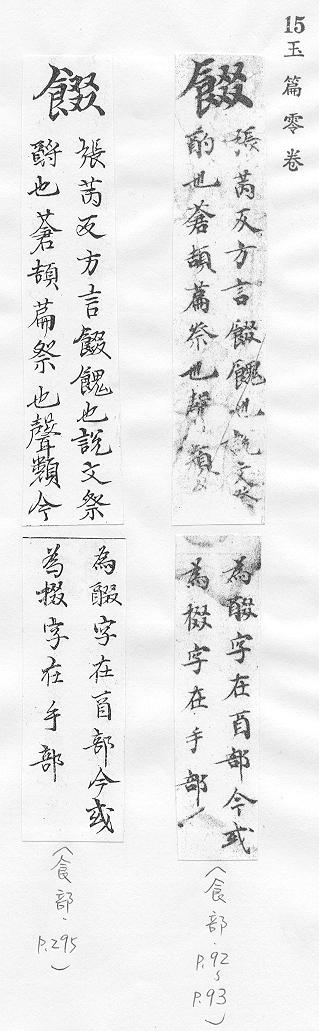 15
玉篇零卷
餟
張芮反方言餟餽也說文祭
酹也蒼頡篇祭也聲類今
為醊字在酉部今或
為掇字在手部
(食部．P.92~P.93)
餟
張芮反方言餟餽也說文祭
酹也蒼頡篇祭也聲類今
為醊字在酉部今或
為掇字在手部
(食部．P.295)